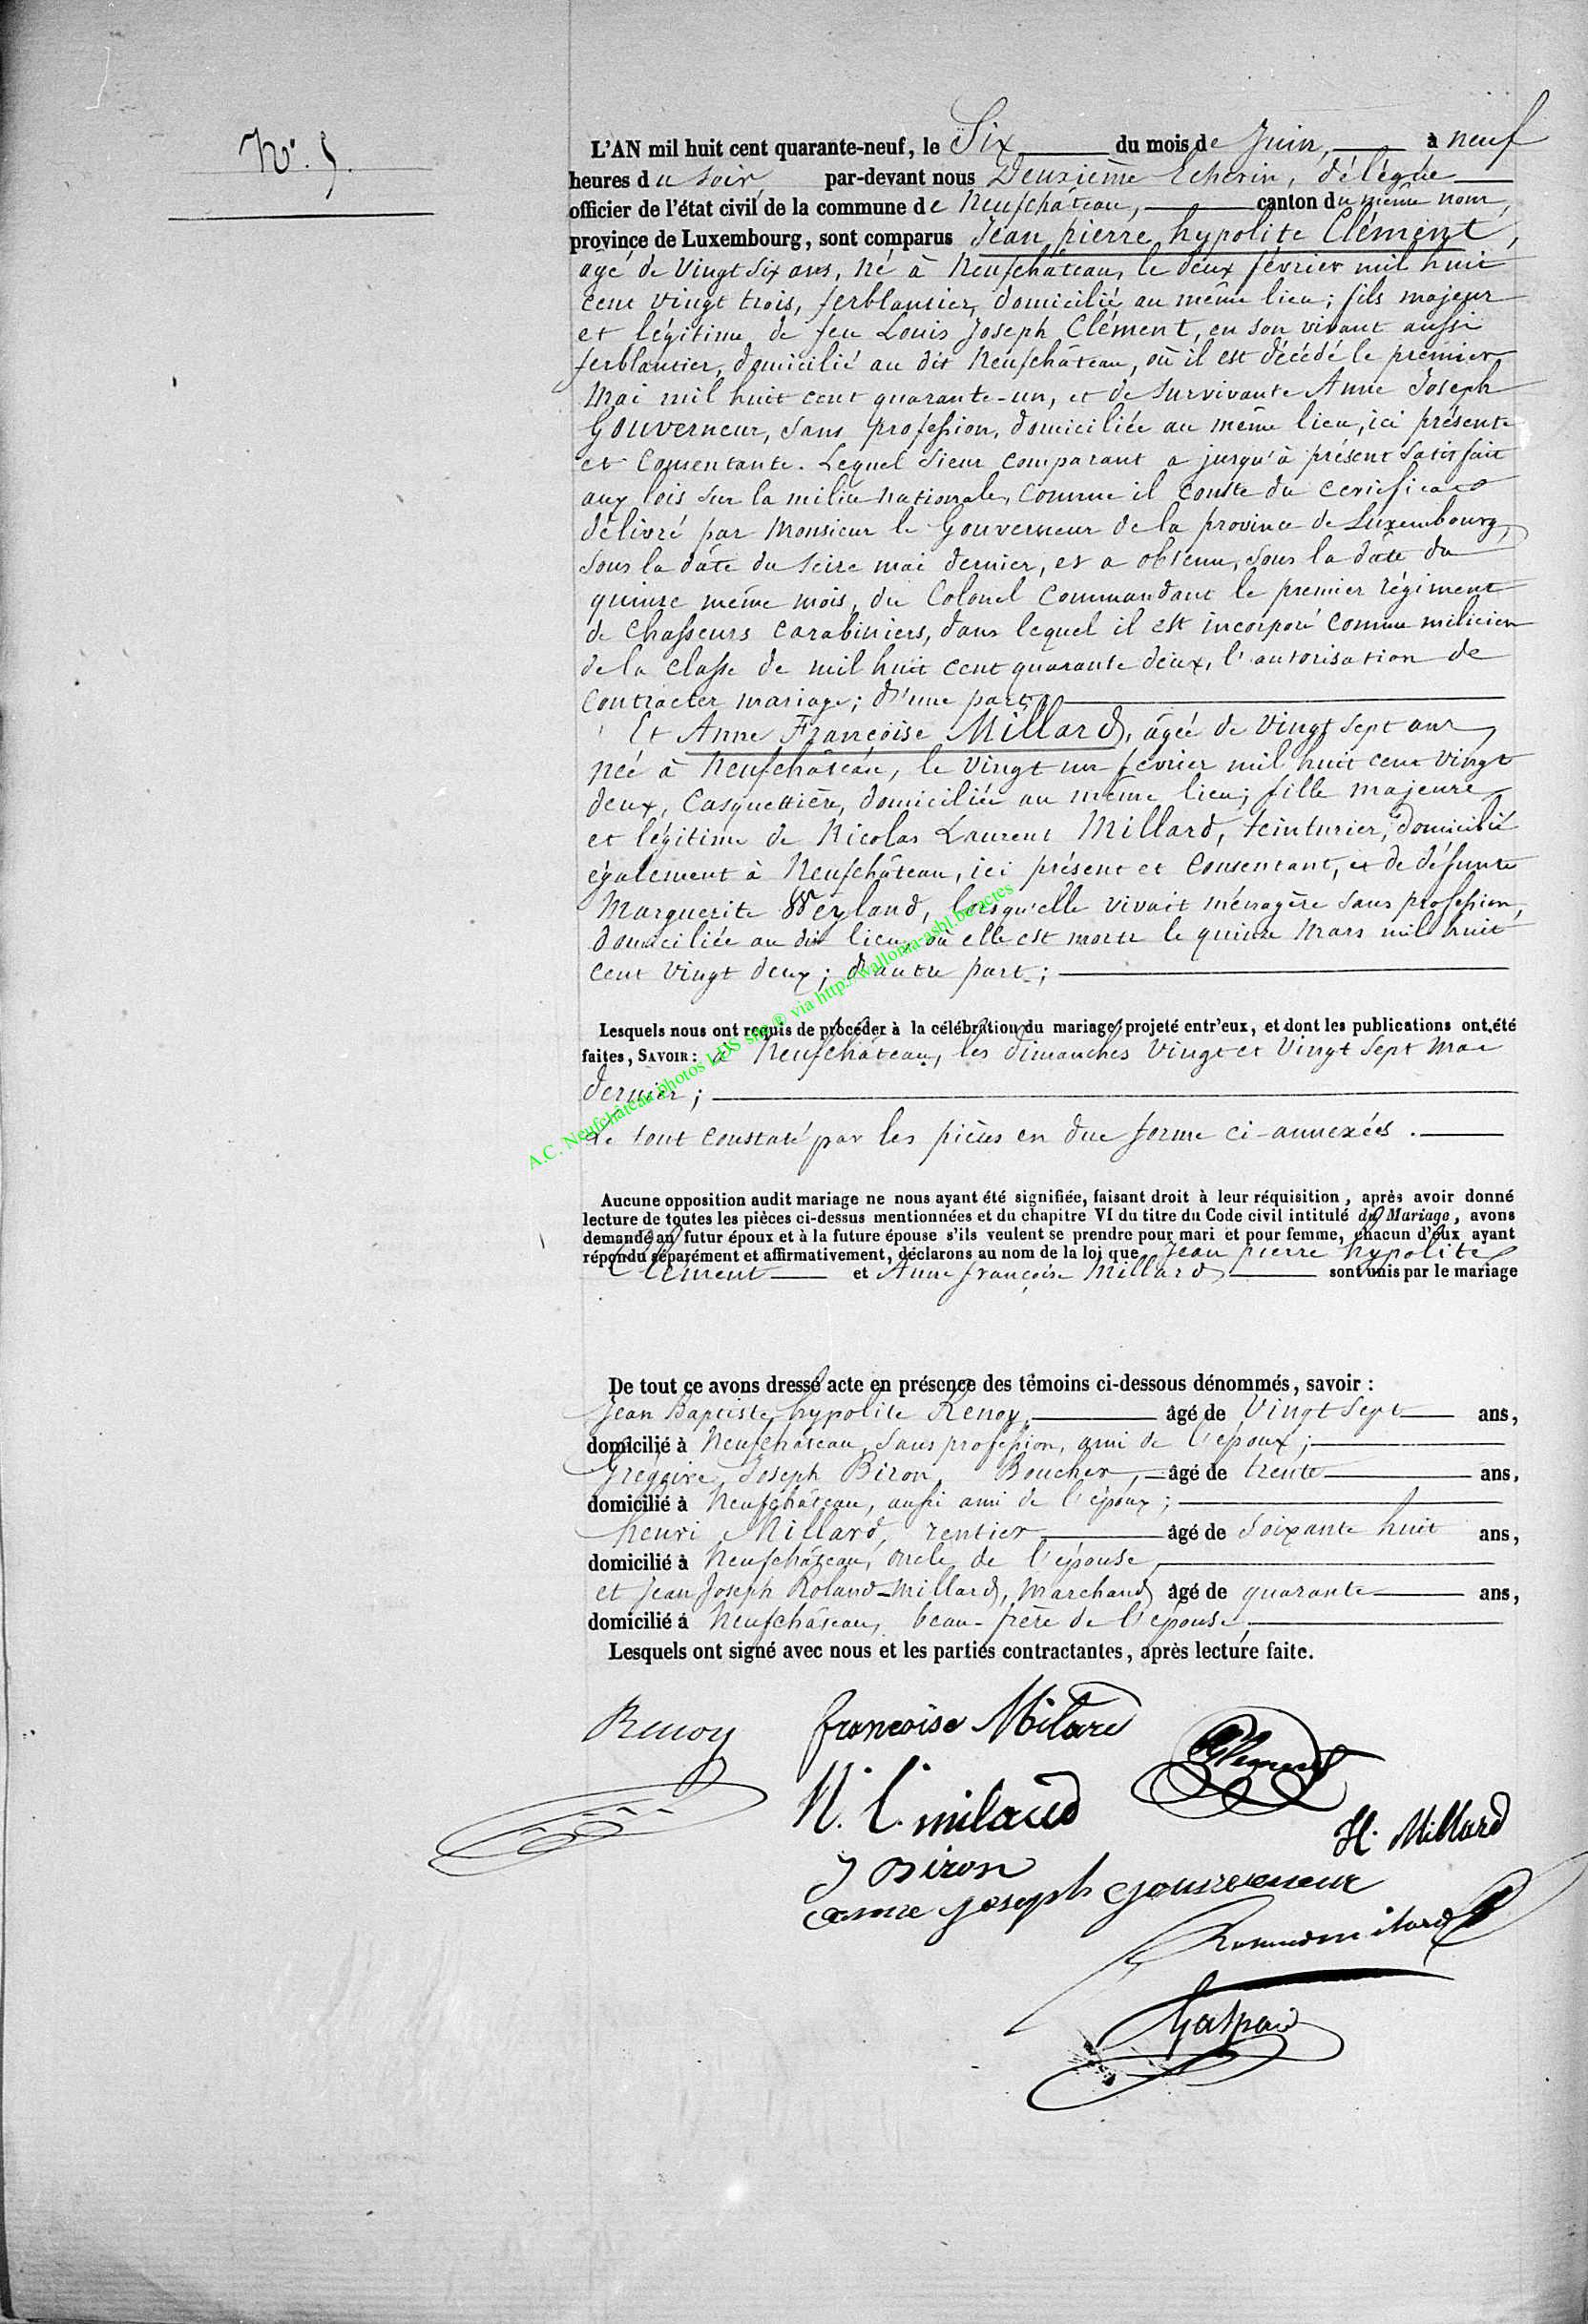 N°. 5.
L'AN mil huit cent quarante-neuf, le Six du mois de Juin, à neuf
heures du soir, par-devant nous Deuxième Echevin, délégué
officier de l'état civil de la commune de Neufchâteau, canton du même nom,
province de Luxembourg, sont comparus Jean pierre hypolite Clément,
agé de Vingt Six ans, né à Neufchâteau, le deux février mil huit
cent vingt trois, ferblantier, domicilié au même lieu; fils majeur
et légitime de feu Louis Joseph Clément, en son vivant aussi
ferblantier, domicilié au dit Neufchâteau, où il est décédé le premier
Mai mil huit cent quarante-un, et de Survivante Anne Joseph
Gouverneur, sans profession, domiciliée au même lieu, ici présente
et Consentante. Lequel Sieur Comparant a jusqu'à présent Satisfait
aux lois sur la milice nationale, Comme il Conste du Certificat
délivré par Monsieur le Gouverneur de la province de Luxembourg,
sous la date du seize mai dernier, et a obtenu, sous la date du
quinze même mois, du Colonel Commandant le premier régiment
de Chasseurs Carabiniers, dans lequel il est incorporé Comme milicien
de la Classe de mil huit cent quarante deux, l'autorisation de
Contracter mariage; d'une part;
Et Anne Françoise Millard, âgée de Vingt Sept ans
née à Neufchâteau, le Vingt un février mil huit cent Vingt
deux, Casquettière, domiciliée au même lieu; fille majeure
et légitime de Nicolas Laurent Millard, teinturier, domicilié
également à Neufchâteau, ici présent et Consentant, et de défunte
Marguerite Weyland, lorsqu'elle vivait ménagère Sans profession,
domiciliée au dit lieu, où elle est morte le quinze Mars mil huit
cent Vingt deux; d'autre part;
Lesquels nous ont requis de procéder à la célébration du mariage projeté entr'eux, et dont les publications ont été
faites, SAVOIR: à Neufchâteau, les dimanches Vingt et Vingt Sept Mai
dernier;
Le tout Constaté par les pièces en due forme ci-annexées.
A.C. Neufchâteau photos LDS sur ® via http://wallonia-asbl.be/actes
Aucune opposition audit mariage ne nous ayant été signifiée, faisant droit à leur réquisition, après avoir donné
lecture de toutes les pièces ci-dessus mentionnées et du chapitre VI du titre du Code civil intitulé du Mariage, avons
demandé au futur époux et à la future épouse s'ils veulent se prendre pour mari et pour femme, chacun d'eux ayant
répondu séparément et affirmativement, déclarons au nom de la loi que Jean pierre hypolite
Clément et Anne françoise Millard sont unis par le mariage
De tout ce avons dressé acte en présence des témoins ci-dessous dénommés, savoir:
Jean Baptiste hypolite Renoy, âgé de Vingt Sept ans,
domicilié à Neufchâteau, Sans profession, ami de l'époux;
Grégoire Joseph Biron, Boucher, âgé de trente ans,
domicilié à Neufchâteau, aussi ami de l'époux;
henri Millard, rentier âgé de Soixante huit ans,
domicilié à Neufchâteau, oncle de l'épouse,
et Jean Joseph Roland-Millard, Marchand âgé de quarante ans,
domicilié à Neufchâteau, beau-frère de l'épouse,
Lesquels ont signé avec nous et les parties contractantes, après lecture faite.
Renoy francoise Milard
Clement
N. L. milard
H. Millard
J Biron
anne joseph gouverneur
Rolandmilard
Gaspard